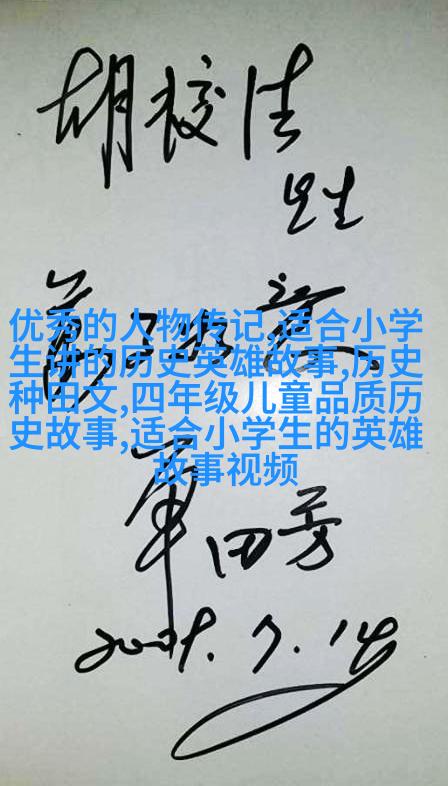 先生
优秀的人物传记,适合小学
生讲的历史英雄故事,历史
种田文,四年级儿童品质历
史故事,适合小学生的英雄
故事视频
单田芳